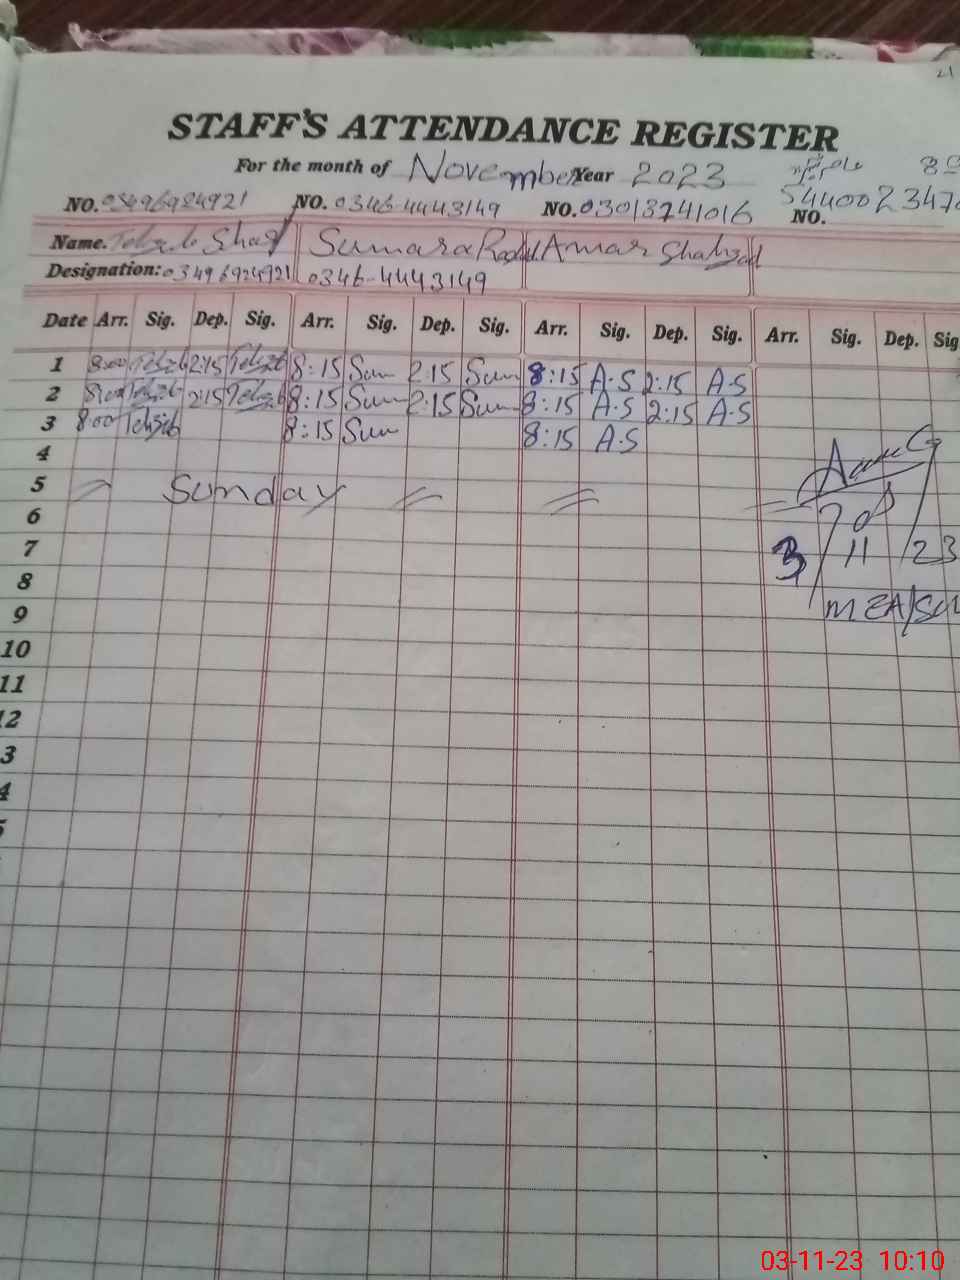 21
STAFF'S ATTENDANCE REGISTER
For the month of November Year 2023
NO. 03496924921 NO. 0346-4443149 NO. 03013741016 NO. 54400234
Name. Sumara Amar Shahzad
Designation: 03496924921 0346-4443149
Date Arr. Sig. Dep. Sig. Arr. Sig. Dep. Sig. Arr. Sig. Dep. Sig. Arr. Sig. Dep. Sig
1 8:00 2:15 8:15 Sum 2:15 Sum 8:15 A.S 2:15 A.S
2 8:00 2:15 8:15 Sum 2:15 Sum 8:15 A.S 2:15 A.S
3 8:00 8:15 Sum 8:15 A.S
4
5 Sunday
6
7 3/11/23
8
9 MEA/
10
11
12
3
4
5
03-11-23 10:10